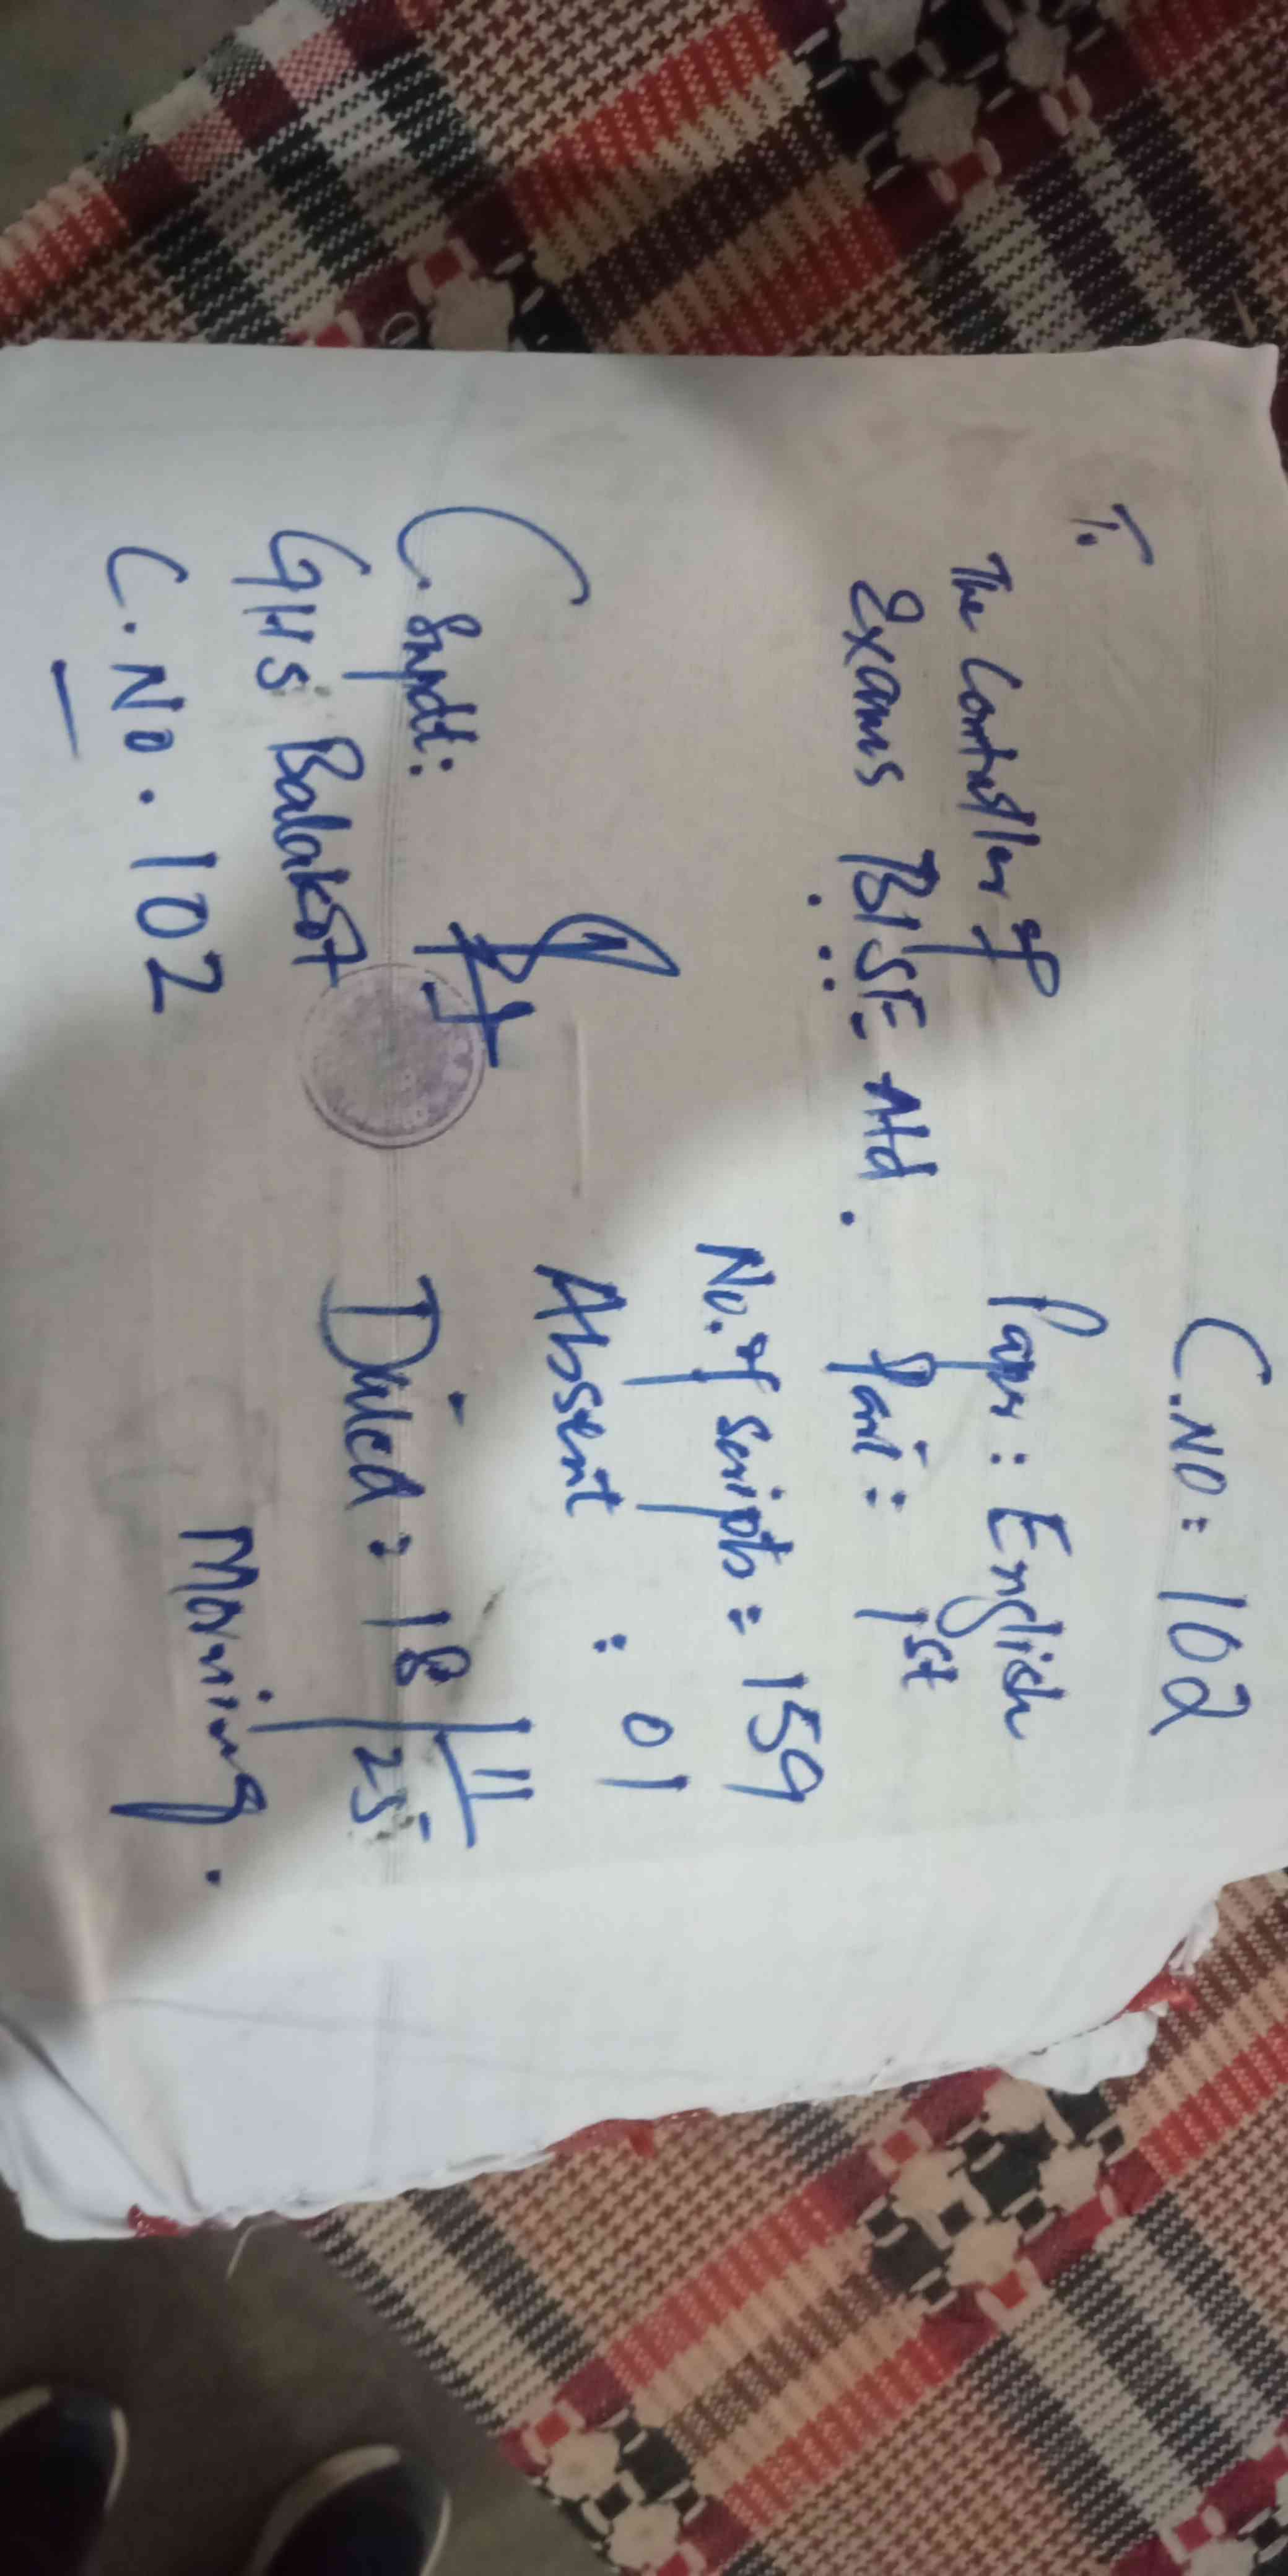 C.NO: 102
To
The Controller of
Exams BISE Atd.
Paper: English
Part: 1st
No. of scripts = 159
Absent : 01
C. Supdt:
GHS Balakot
C.No. 102
Dated: 18/11/25
Morning.